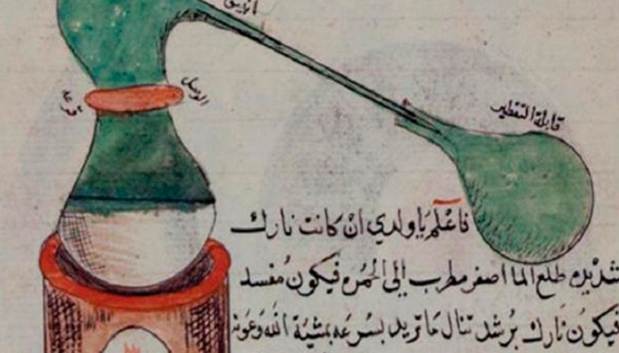 انبيق
الوصل
قرعه
قابلة التقطير
فاعْلم يَا ولدي انْ كانت نارك
شديده طلع الما اصفر مطرب إلي الحُمره فيكون مُفسد
فيكون نارك برُشد تنال مَا تريد بسرعه بمشيَة الله وعَونه